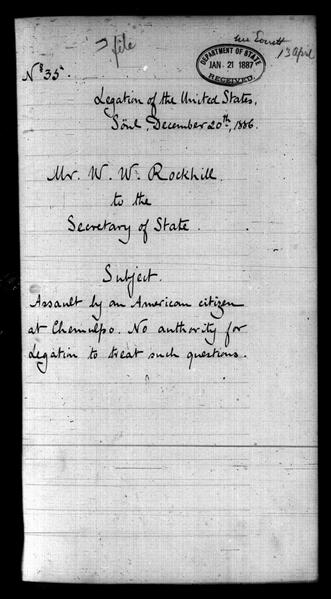 file
13 April
DEPARTMENT OF STATE
JAN. 21 1887
RECEIVED.
No 35.
Legation of the United States,
Söul, December 20th, 1886.
Mr. W. W. Rockhill
to the
Secretary of State.
Subject.
Assault by an American citizen
at Chemulpo. No authority for
Legation to treat such questions.